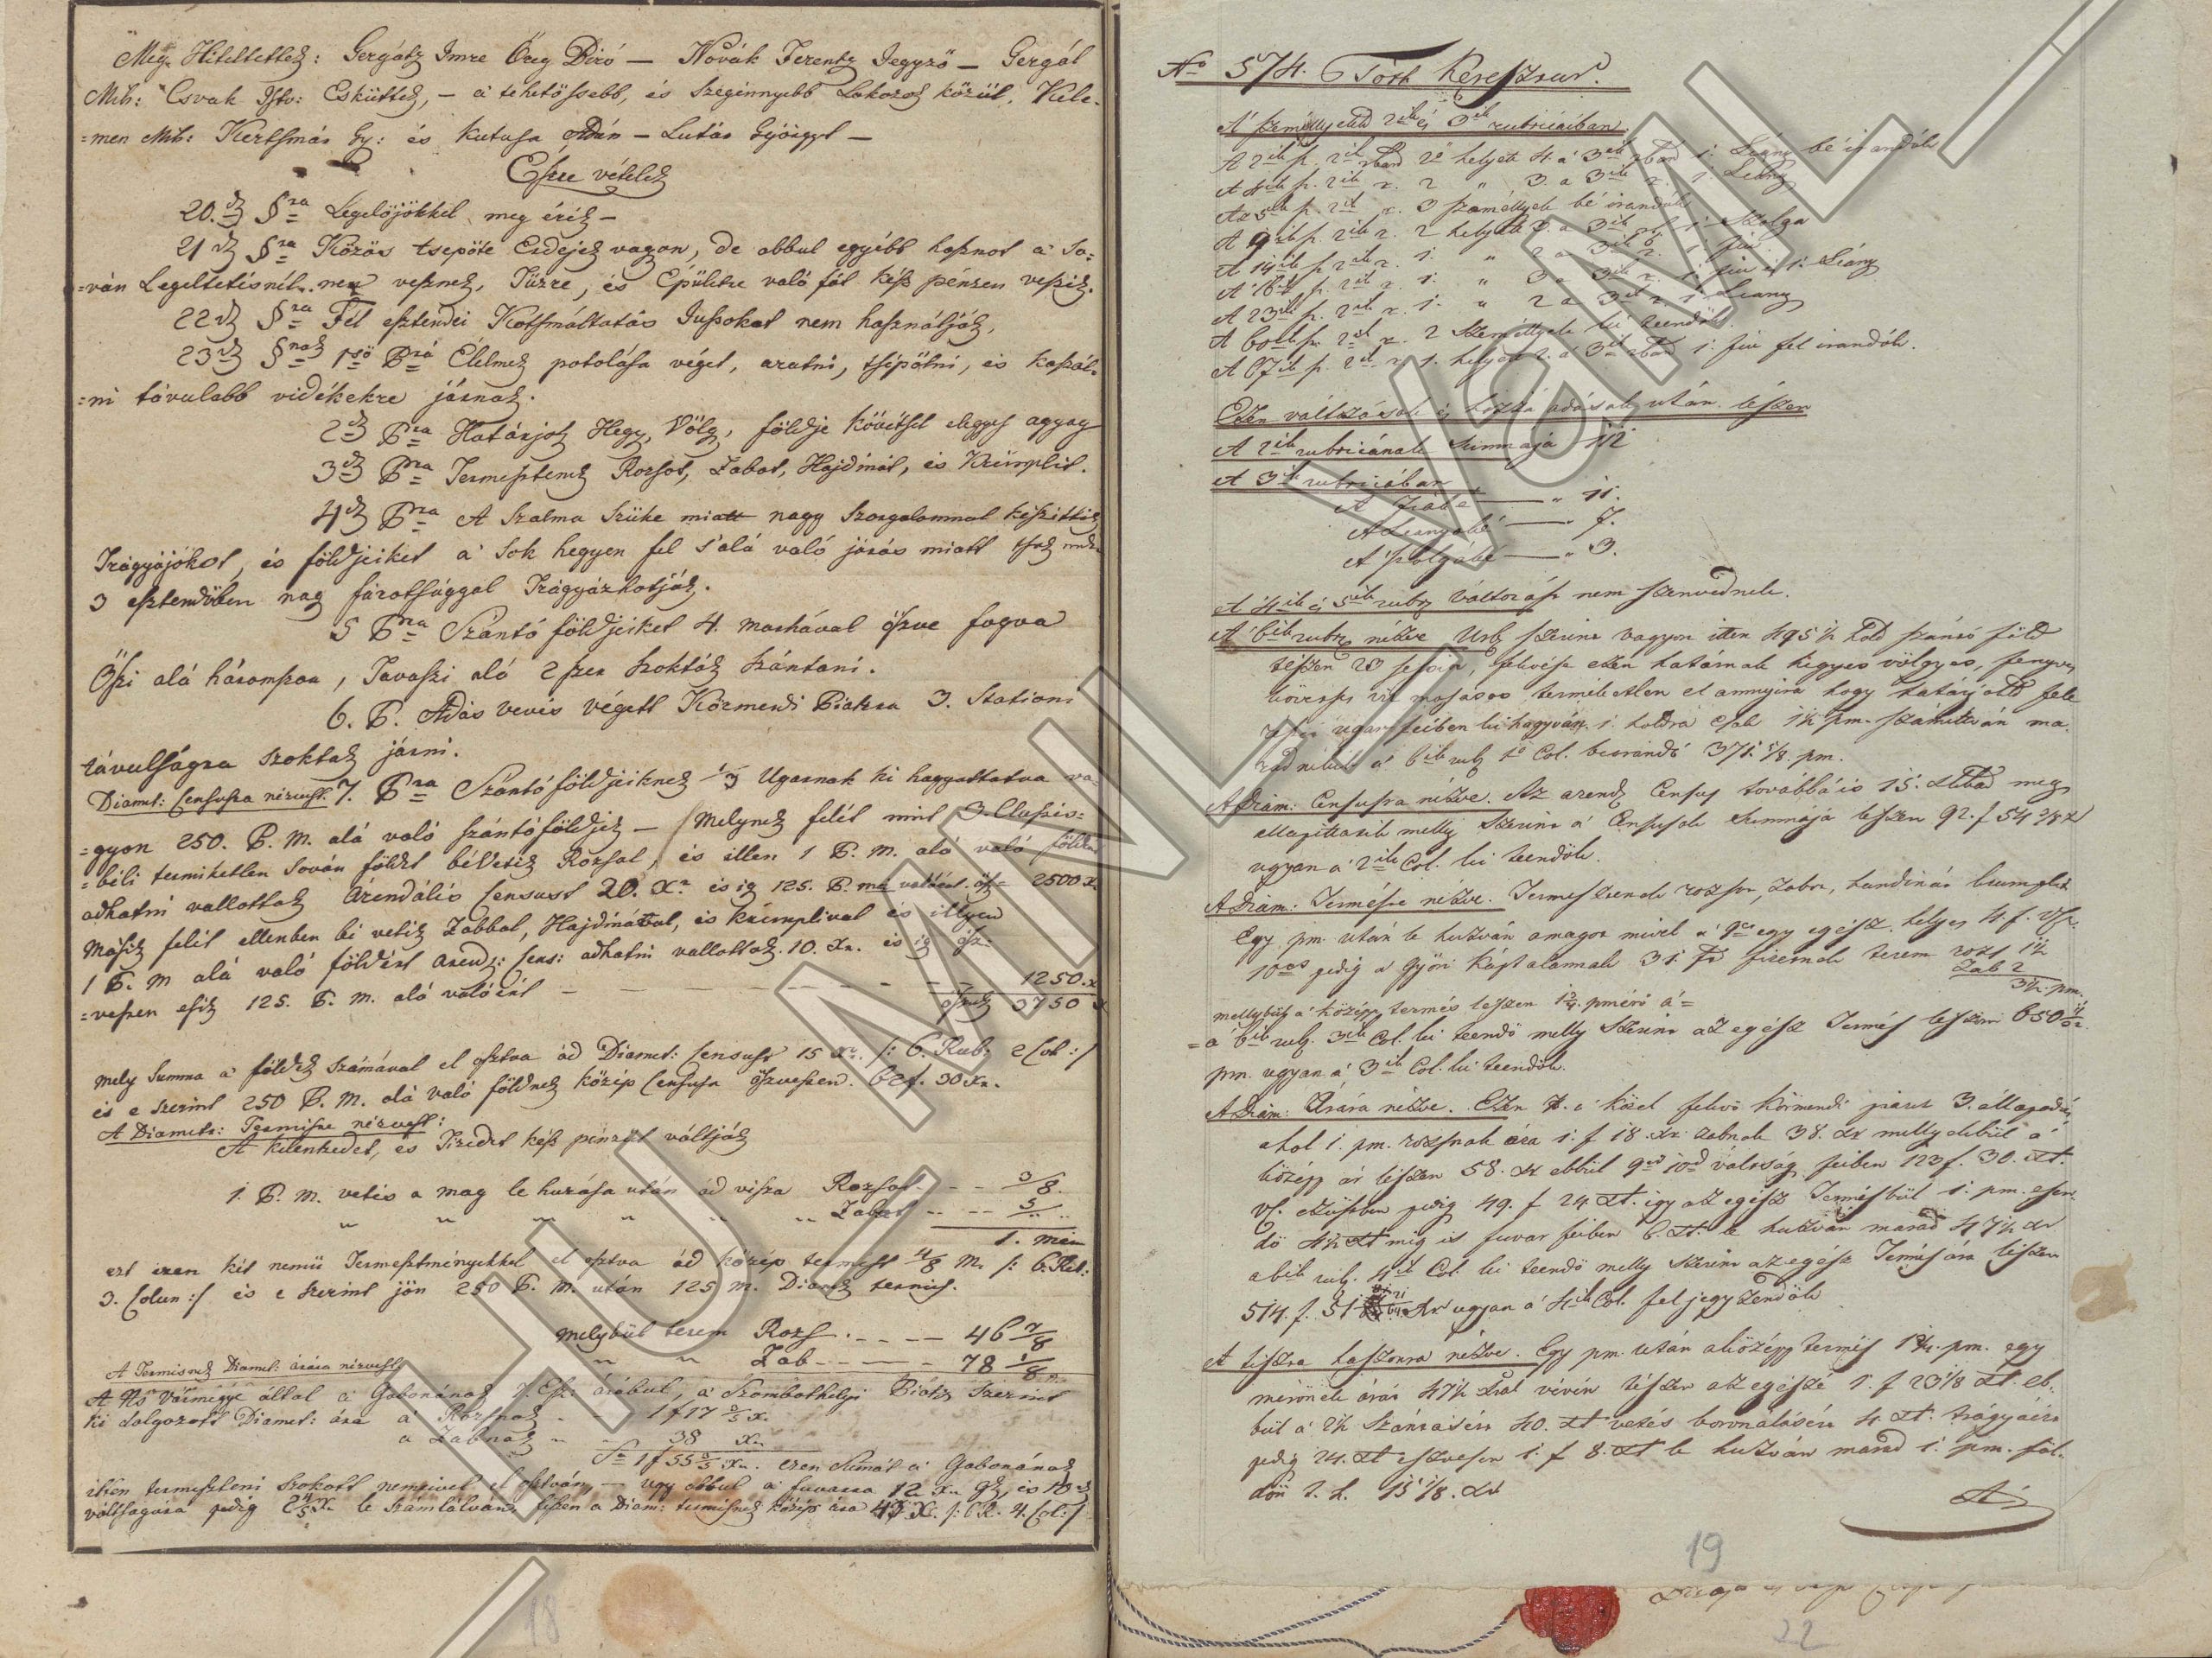 Meg Hiteltettek: Gergátz Imre Öreg Biró — Novák Ferentz Jegyző — Gergál
Mih: Csvak Istv: Esküttek, — a' tehetőssebb, és szegénnyebb Lakosok közül, Kele-
=men Mih: Kertsmár Gy: és Kutasa Ádán — Lutár György —
Eszre vételek
20.dik §ra Legelőjökkel meg érik —
21dik §ra Közös tsepőte Erdejek vagyon, de abbul egyébb hasznot a' So-
=ván Legeltetésnél nem vesznek, Tüzre, és Épületre való fát kész pénzen veszik.
22dik §ra Fél esztendei Kotsmáltatás Jussokat nem használják,
23dik §nak 1ső Pra Élelmek potolása véget, aratni, tsépölni, és kaszál-
=ni távulabb vidékekre járnak.
2dik Pra Határjok Hegy, Völg, földje kövétsel elegyes agyag
3dik Pra Termesztenek Rozsot, Zabot, Hajdinát, és Krumplit.
4dik Pra A Szalma Szüke miatt nagy Szorgalommal készittik
Trágyájokot, és földjeiket a' Sok hegyen fel s alá való járás miatt tsak
3 esztendőben nag fárotsággal Trágyázhatják.
5 Pra Szántó földjeiket 4. marhával öszve fogva
Öszi alá háromszor, Tavaszi aló 2 szer szokták szántani.
6. P. Adás vevés végett Körmendi Piatzra 3. Stationi
távulságra szoktak járni.
Diamet: Censusra nézvest. 7. Pra Szántó földjeiknek 1/3 Ugarnak ki hagyattatva va-
=gyon 250. P. M. alá való szántóföldjek — Melynek felét mint 3. Classis-
=béli termiketlen Sován földet bé vetik Rozsal, és illen 1 P. M. aló való földér
adhatni vallottak Arendális Censust 20. Xr és ig 125. P. m 2500 x
Másik felét ellenben bé vetik Zabbal, Hajdinával, és krumplival és illyen
1 P. M alá való földért arend: Cens: adhatni vallottak 10. Xr. és ig ösz-
=veszen esik 125. P. m. aló valóért — — — 1250. x
öszvek 3750 x
Mely Summa a' földek számával el osztva ád Diamet: Censust 15 xr. /: 6. Rub: 2 Col :/
és e szerint 250 P. M. alá való földnek közép Censusa öszvessen. 62f. 30 Xr.
A Diamets: Termisre nézvest:
A kilentzedet, és Tizedet kész pénzel váltják
1. P. M. vetés a mag le huzása után ád viszsza Rozsot — — 3/8.
" " " " " " Zabot — — 5/..
1. mér
ezt ezen két nemü Termesztményekkel el osztva ád közép termést 4/8 M. /: 6. Rub:
3. Colum :/ és e szerint jön 250 P. M. után 125 M. Diamets termis.
Melybül terem Rozs . — — — 46 7/8
" " Zab — — — 78 1/8
A Termisnek Diamet: árára nézvest
A Ns Vármegye által a' Gabonának áràbul, a' Szombathelyi Piatz szerint
ki dolgozott Diamet: ára a' Rozsnak — 1 f 17 3/5 x.
a Zabnak — 38 xr.
Sa 1f 55 3/5 xr. ezen Sumát a' Gabonának
itten termeszteni szokott nemeivel el osztván — ugy abbul a' fuvarra 12 xr 9dik és 10dik
váltságára pedig 2 4/5 x. le számlálván, leszen a Diam: termisnek közép ára 43 X. /: 6 R. 4. Col :/
18
No 574. Tóth Keresztur.
A' személlyeknek 2ik és 3ik rubricáiban
A 2ik p. 2ik rbad 2ő helyett 4. a' 3ik rbad 1. Leány bé irandók
A 4ik p. 2ik r. 2 " 3. a 3ik r. 1. Leány
Az 5ik p. 2ik r. 3 személlyek bé irandók
A 9ik p. 2ik r. 2 helyett 3. a 3ik r. 1. Szolga
A 14ik p. 2ik r. 1. " 2 a 3ik r. 1. fiu
A 16ik p. 2ik r. 1. " 3 a 3ik r. 1. fiu és 1. Leány
A 23ik p. 2ik r. 1. " 2 a 3ik r. 1. Leany
A 60ik p. 2ik r. 2 Személlyek ki teendők.
A 67ik p. 2ik r. 1. helyett 2. a' 3ik rbad 1. fiu fel irandók.
Ezen változások és hozzá adások után lészen
A 2ik rubricának Summája 112
A 3ik rubricában
A Fiaké — " 11.
A Leanyoké — " 7.
A' szolgáké — " 3.
A' 4ik és 5ik rubr változást nem szenvednek.
A' 6ik rubr: nézve Urb: szerint vagyon itten 495 1/2 hold szántó föld
tészen 23 sessiót, fekvése ezen határnak hegyes völgyes, fenyves
termeketlen el annyira hogy
ugar feiben ki hagyván 1. holdra csak 1 1/2 pm. számittván ma-
rad nékik a' 6ik rub 1ő Col. beirandó 371. 5/8. pm.
A Diám: Censusra nézve. Az arend. Census továbbá is 15. xlbad meg
allapittatik melly szerint a' Censusok Summája leszen 92. f 54 3/8 x
ugyan a' 2ik Col. ki teendők.
A Diám: Termésre nézve. Termesztenek rozsot, zabot, hardinát krumplit
Egy pm. után le huzván a magot mivel a' 9et egy egész helyes 4. f. Vsz.
10et pedig a Győri Káptalannak 31. fl fizetnek terem rozs 1 1/2
Zab 2
3 1/2. pm.
mellybül a' középp termés leszen 1 3/4. pmérő a'=
=a' 6ik rub. 3ik Col. ki teendő melly szerint az egész Termés leszen 650
pm. ugyan a' 3ik Col. ki teendők.
A Diám: Árára nézve. Ezen H. a' közel fekvő Körmendi piacz 3. állapodás
ahol 1. pm. rozsnak ára 1. f 18. xr. zabnak 38. xr mellyekbül a'
középp ár lészen 58. xr ebbül 9ed 10ed váltság feiben 123 f. 30. xr.
Vf. ezüstben pedig 49. f 24 xr. igy az egész Termésbül 1. pm. esen-
dő 4 1/2 xr mig is fuvar feiben 6. xr. le huzván marad 47 1/2 xr
a 6ik rub. 4ik Col. ki teendő melly szerint az egész Termés ára lészen
514. f. 51 xr ugyan a' 4ik Col. feljegyzendők
A tiszta haszonra nézve. Egy pm. után a középp termés 1 3/4. pm. egy
mérőnek árát 47 1/2 xral vévén tészen az egészé 1. f 23 1/8 xr. eb-
bül a' 2 1/2 Szántásért 40. xr vetés boronálásért 4 xr. trágyáért
pedig 24. xr eszvesen 1. f 8. xr le huzván marad 1. pm. föl-
dön t. h. 15 1/8. xr
19
22